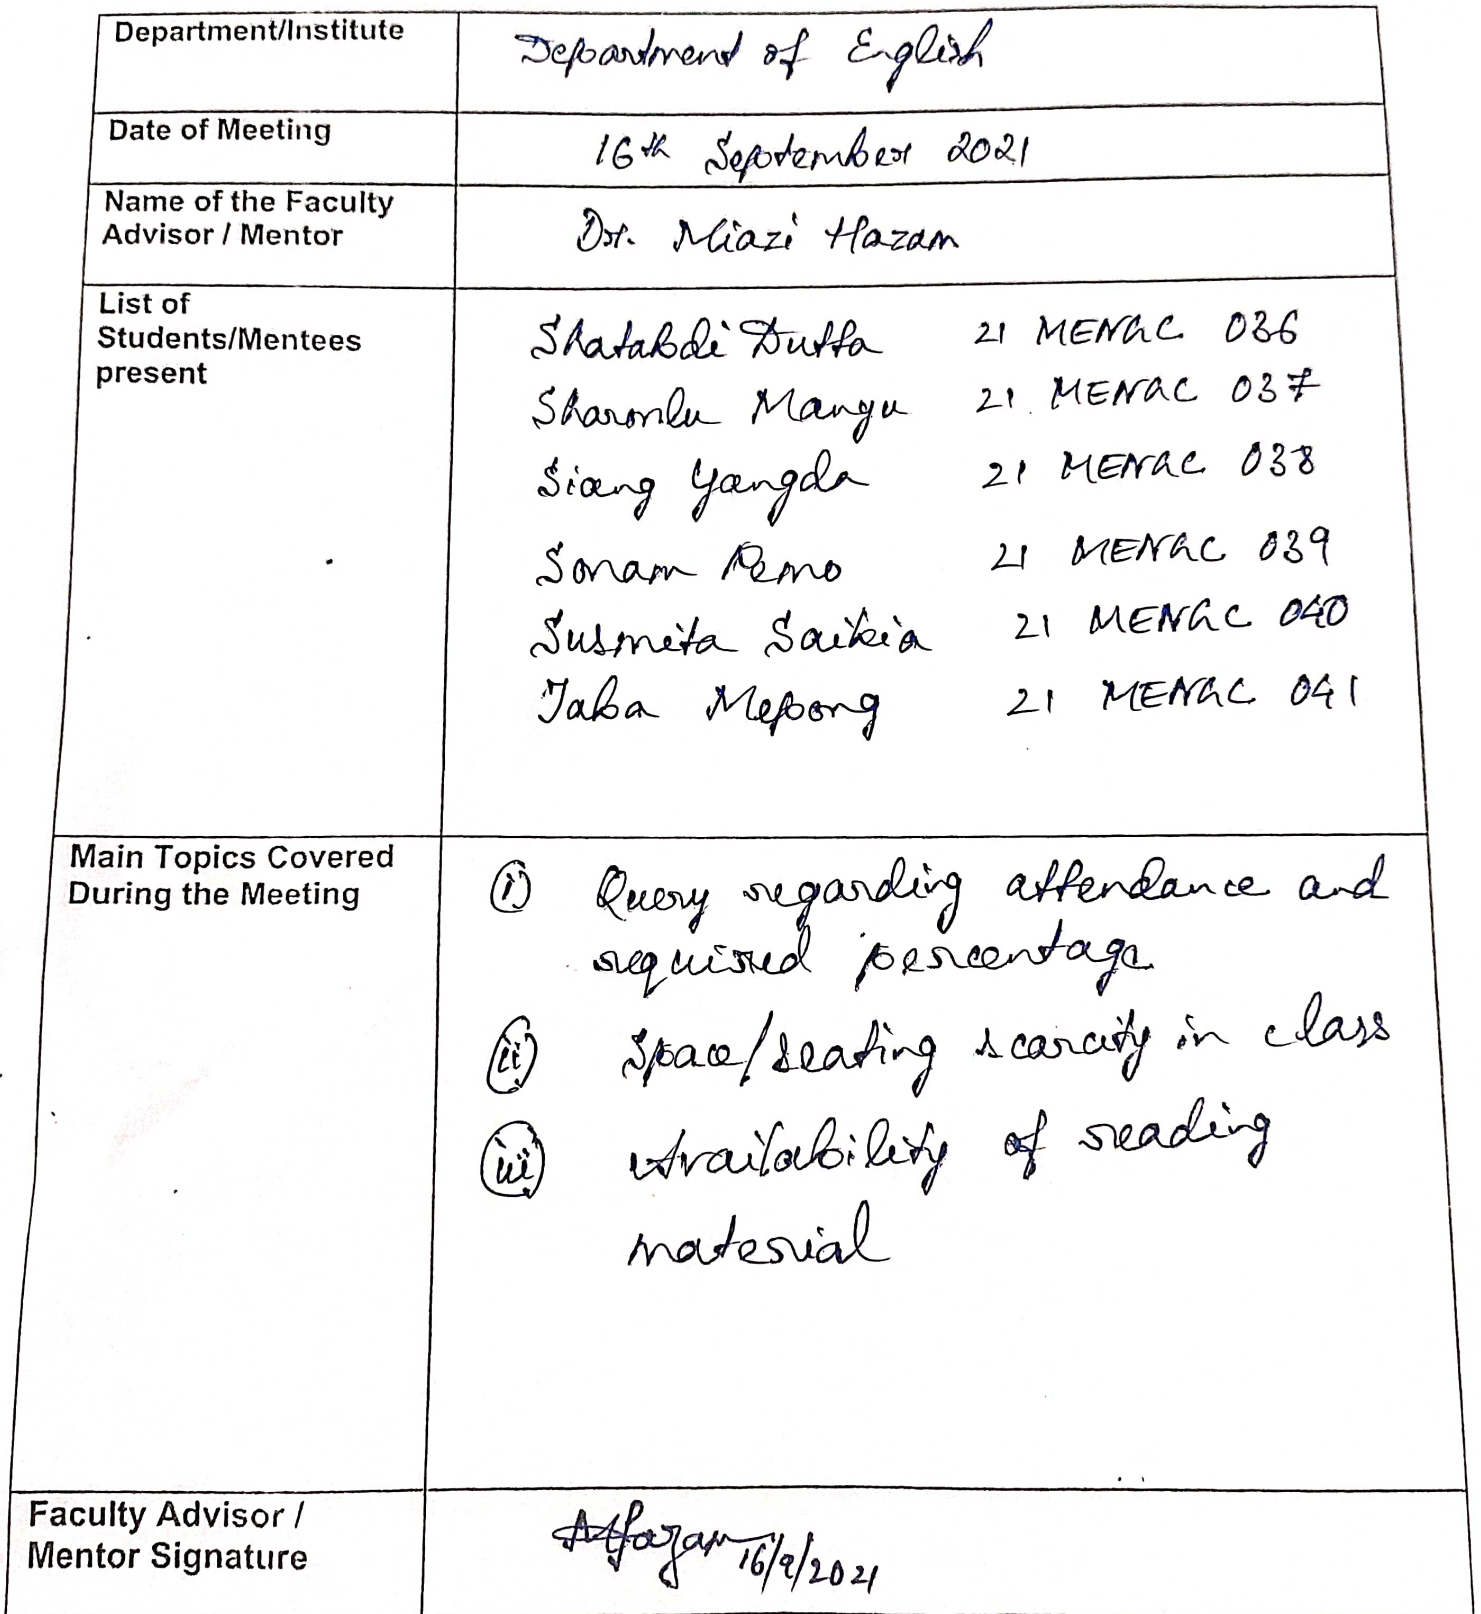 Department/Institute
Department of English
Date of Meeting
16th September 2021
Name of the Faculty
Advisor / Mentor
Dr. Miazi Hazam
List of
Students/Mentees
present
Shatabdi Dutta 21 MENGC 036
Sharmilu Mangu 21 MENGC 037
Siang Yangda 21 MENGC 038
Sonam Pemo 21 MENGC 039
Susmita Saikia 21 MENGC 040
Taba Mepong 21 MENGC 041
Main Topics Covered
During the Meeting
i) Query regarding attendance and
required percentage
ii) Space/seating scarcity in class
iii) Availability of reading
material
Faculty Advisor /
Mentor Signature
Hazam 16/9/2021